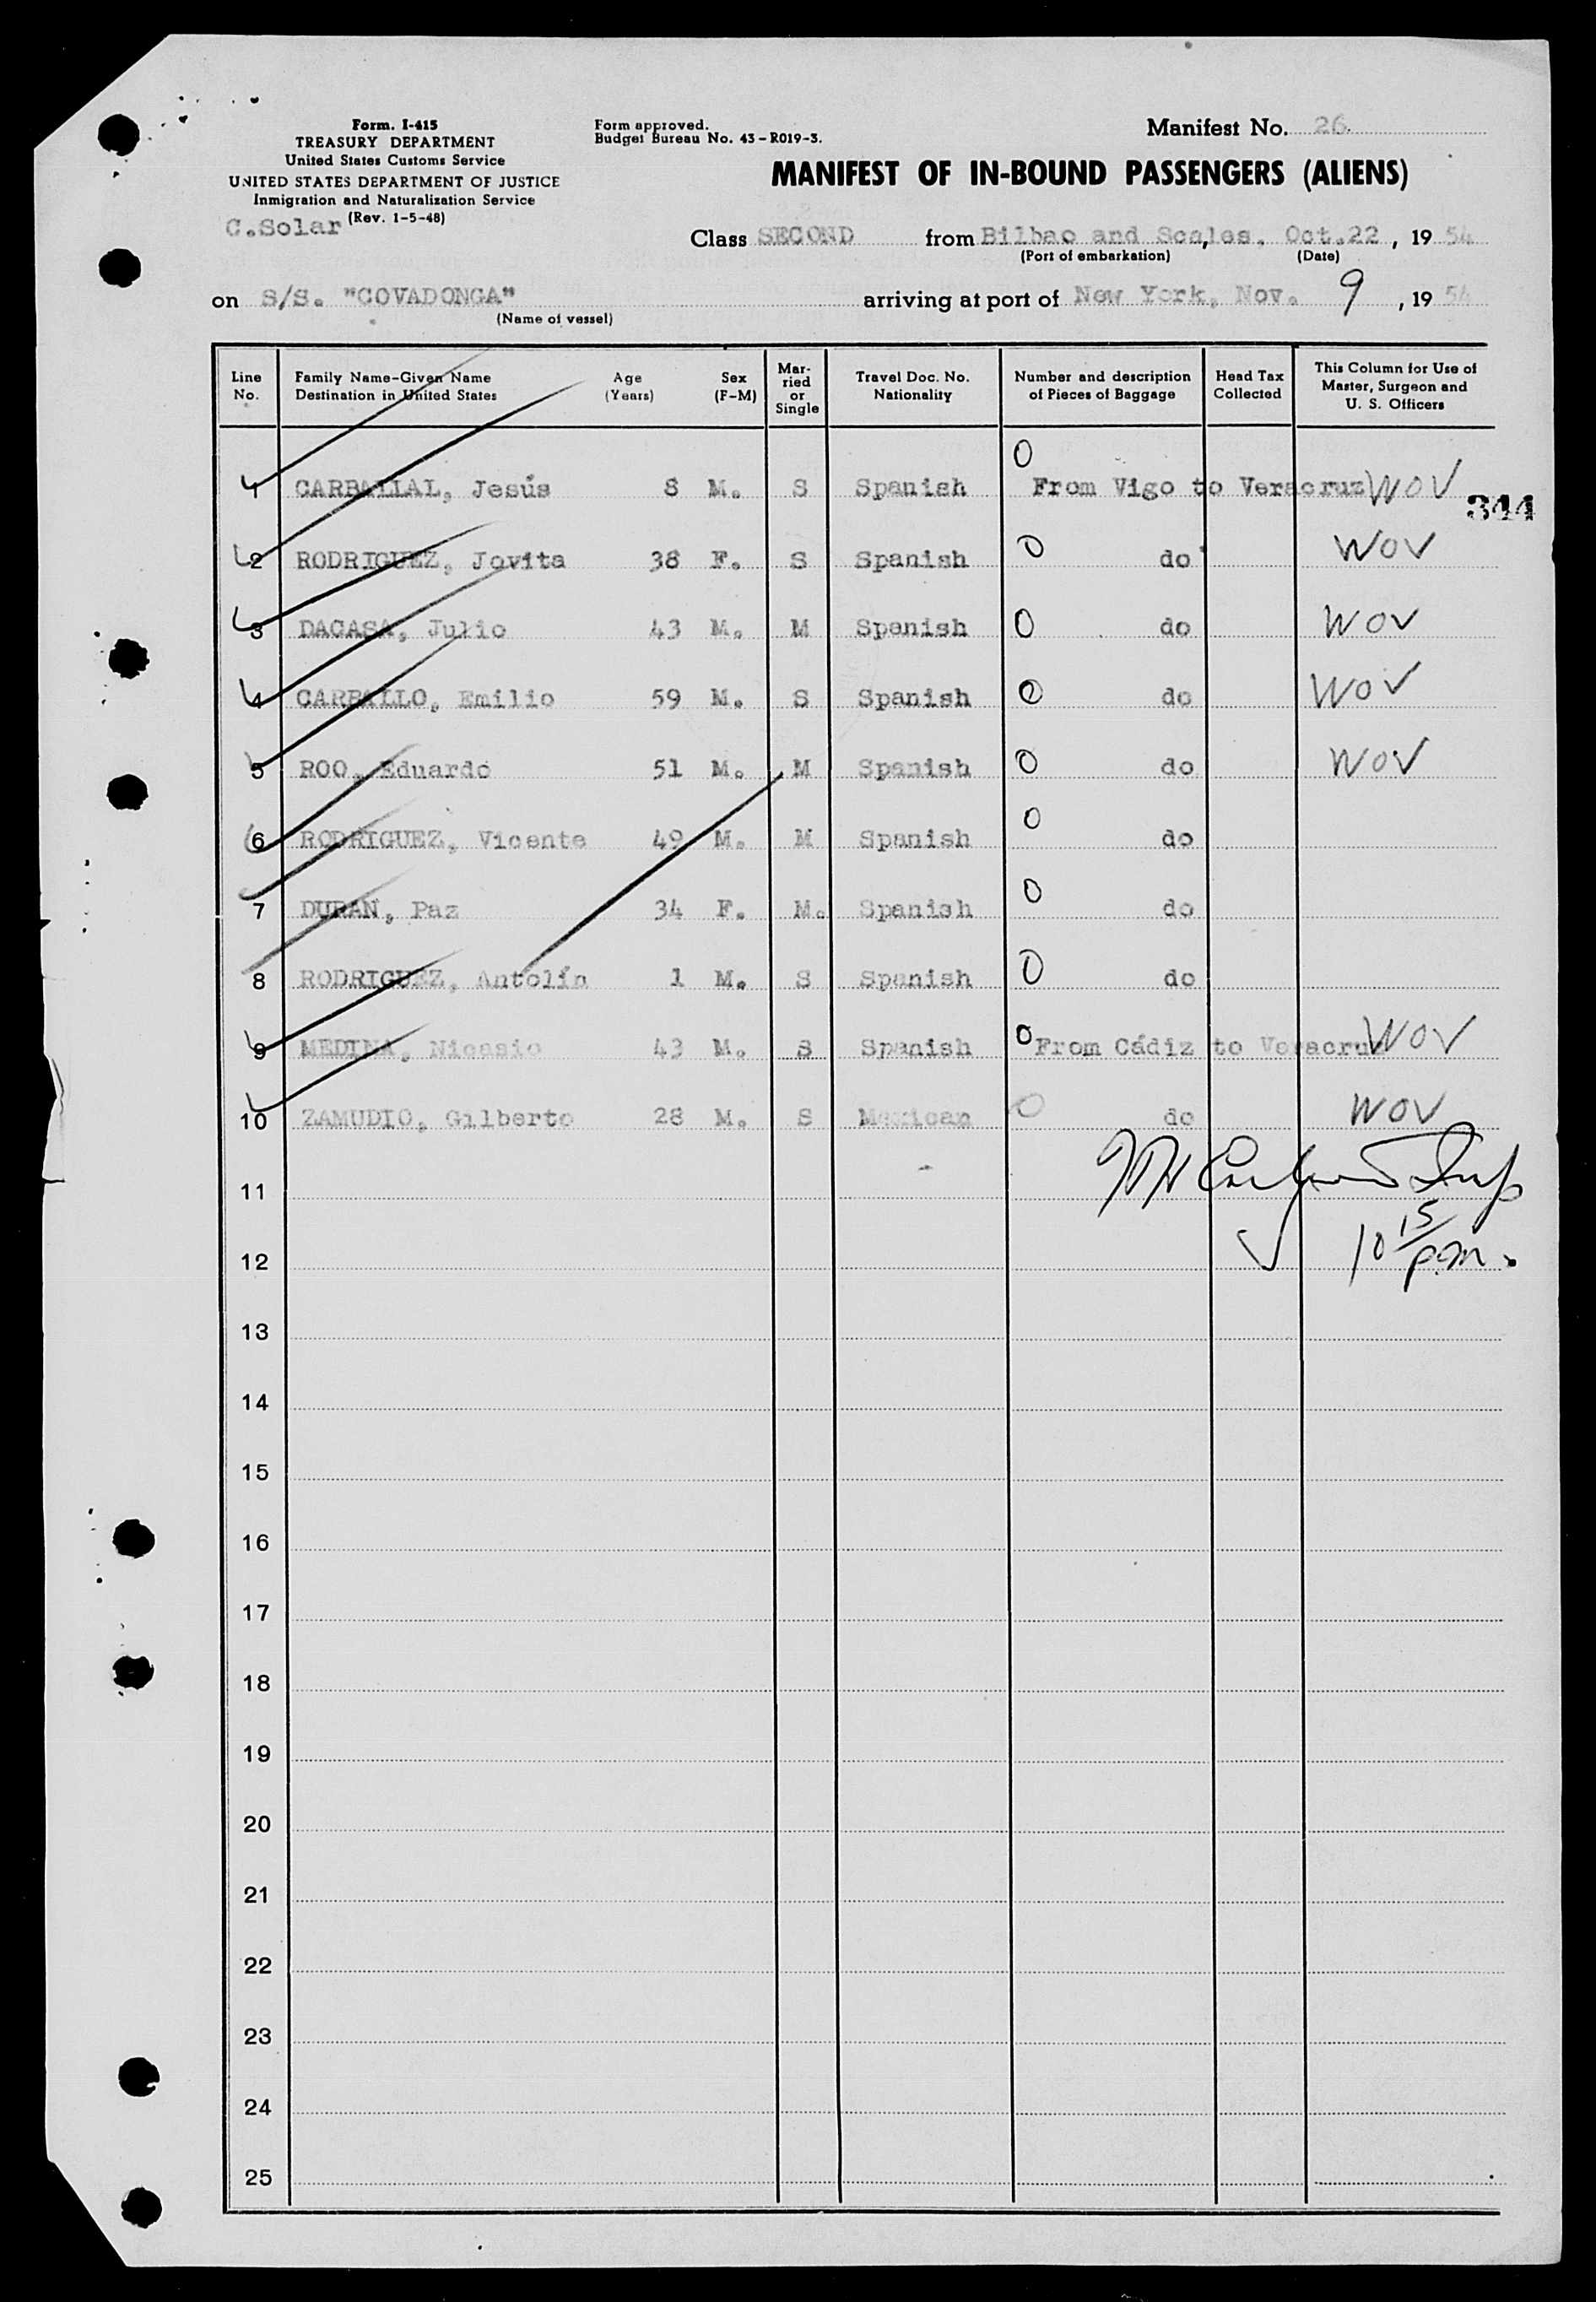 Form. I-415
TREASURY DEPARTMENT
United States Customs Service
UNITED STATES DEPARTMENT OF JUSTICE
Inmigration and Naturalization Service
(Rev. 1-5-48)
C.Solar
Form approved.
Budget Bureau No. 43-R019-3.
Manifest No. 26
MANIFEST OF IN-BOUND PASSENGERS (ALIENS)
Class SECOND from Bilbao and Scales, Oct.22, 19 54
(Port of embarkation) (Date)
on S/S. "COVADONGA" arriving at port of New York, Nov. 9, 19 54
(Name of vessel)
Line No. Family Name-Given Name Destination in United States Age (Years) Sex (F-M) Married or Single Travel Doc. No. Nationality Number and description of Pieces of Baggage Head Tax Collected This Column for Use of Master, Surgeon and U. S. Officers
1 CARBALLAL, Jesús 8 M. S Spanish 0 From Vigo to Veracruz WOV
344
2 RODRIGUEZ, Jovita 38 F. S Spanish 0 do WOV
3 DACASA, Julio 43 M. M Spanish 0 do WOV
4 CARBALLO, Emilio 59 M. S Spanish 0 do WOV
5 ROO, Eduardo 51 M. M Spanish 0 do WOV
6 RODRIGUEZ, Vicente 49 M. M Spanish 0 do
7 DURAN, Paz 34 F. M. Spanish 0 do
8 RODRIGUEZ, Antolín 1 M. S Spanish 0 do
9 MEDINA, Nicasio 43 M. S Spanish 0 From Cádiz to Veracruz WOV
10 ZAMUDIO, Gilberto 28 M. S Mexican 0 do WOV
11
12 10 15 p.m.
13
14
15
16
17
18
19
20
21
22
23
24
25